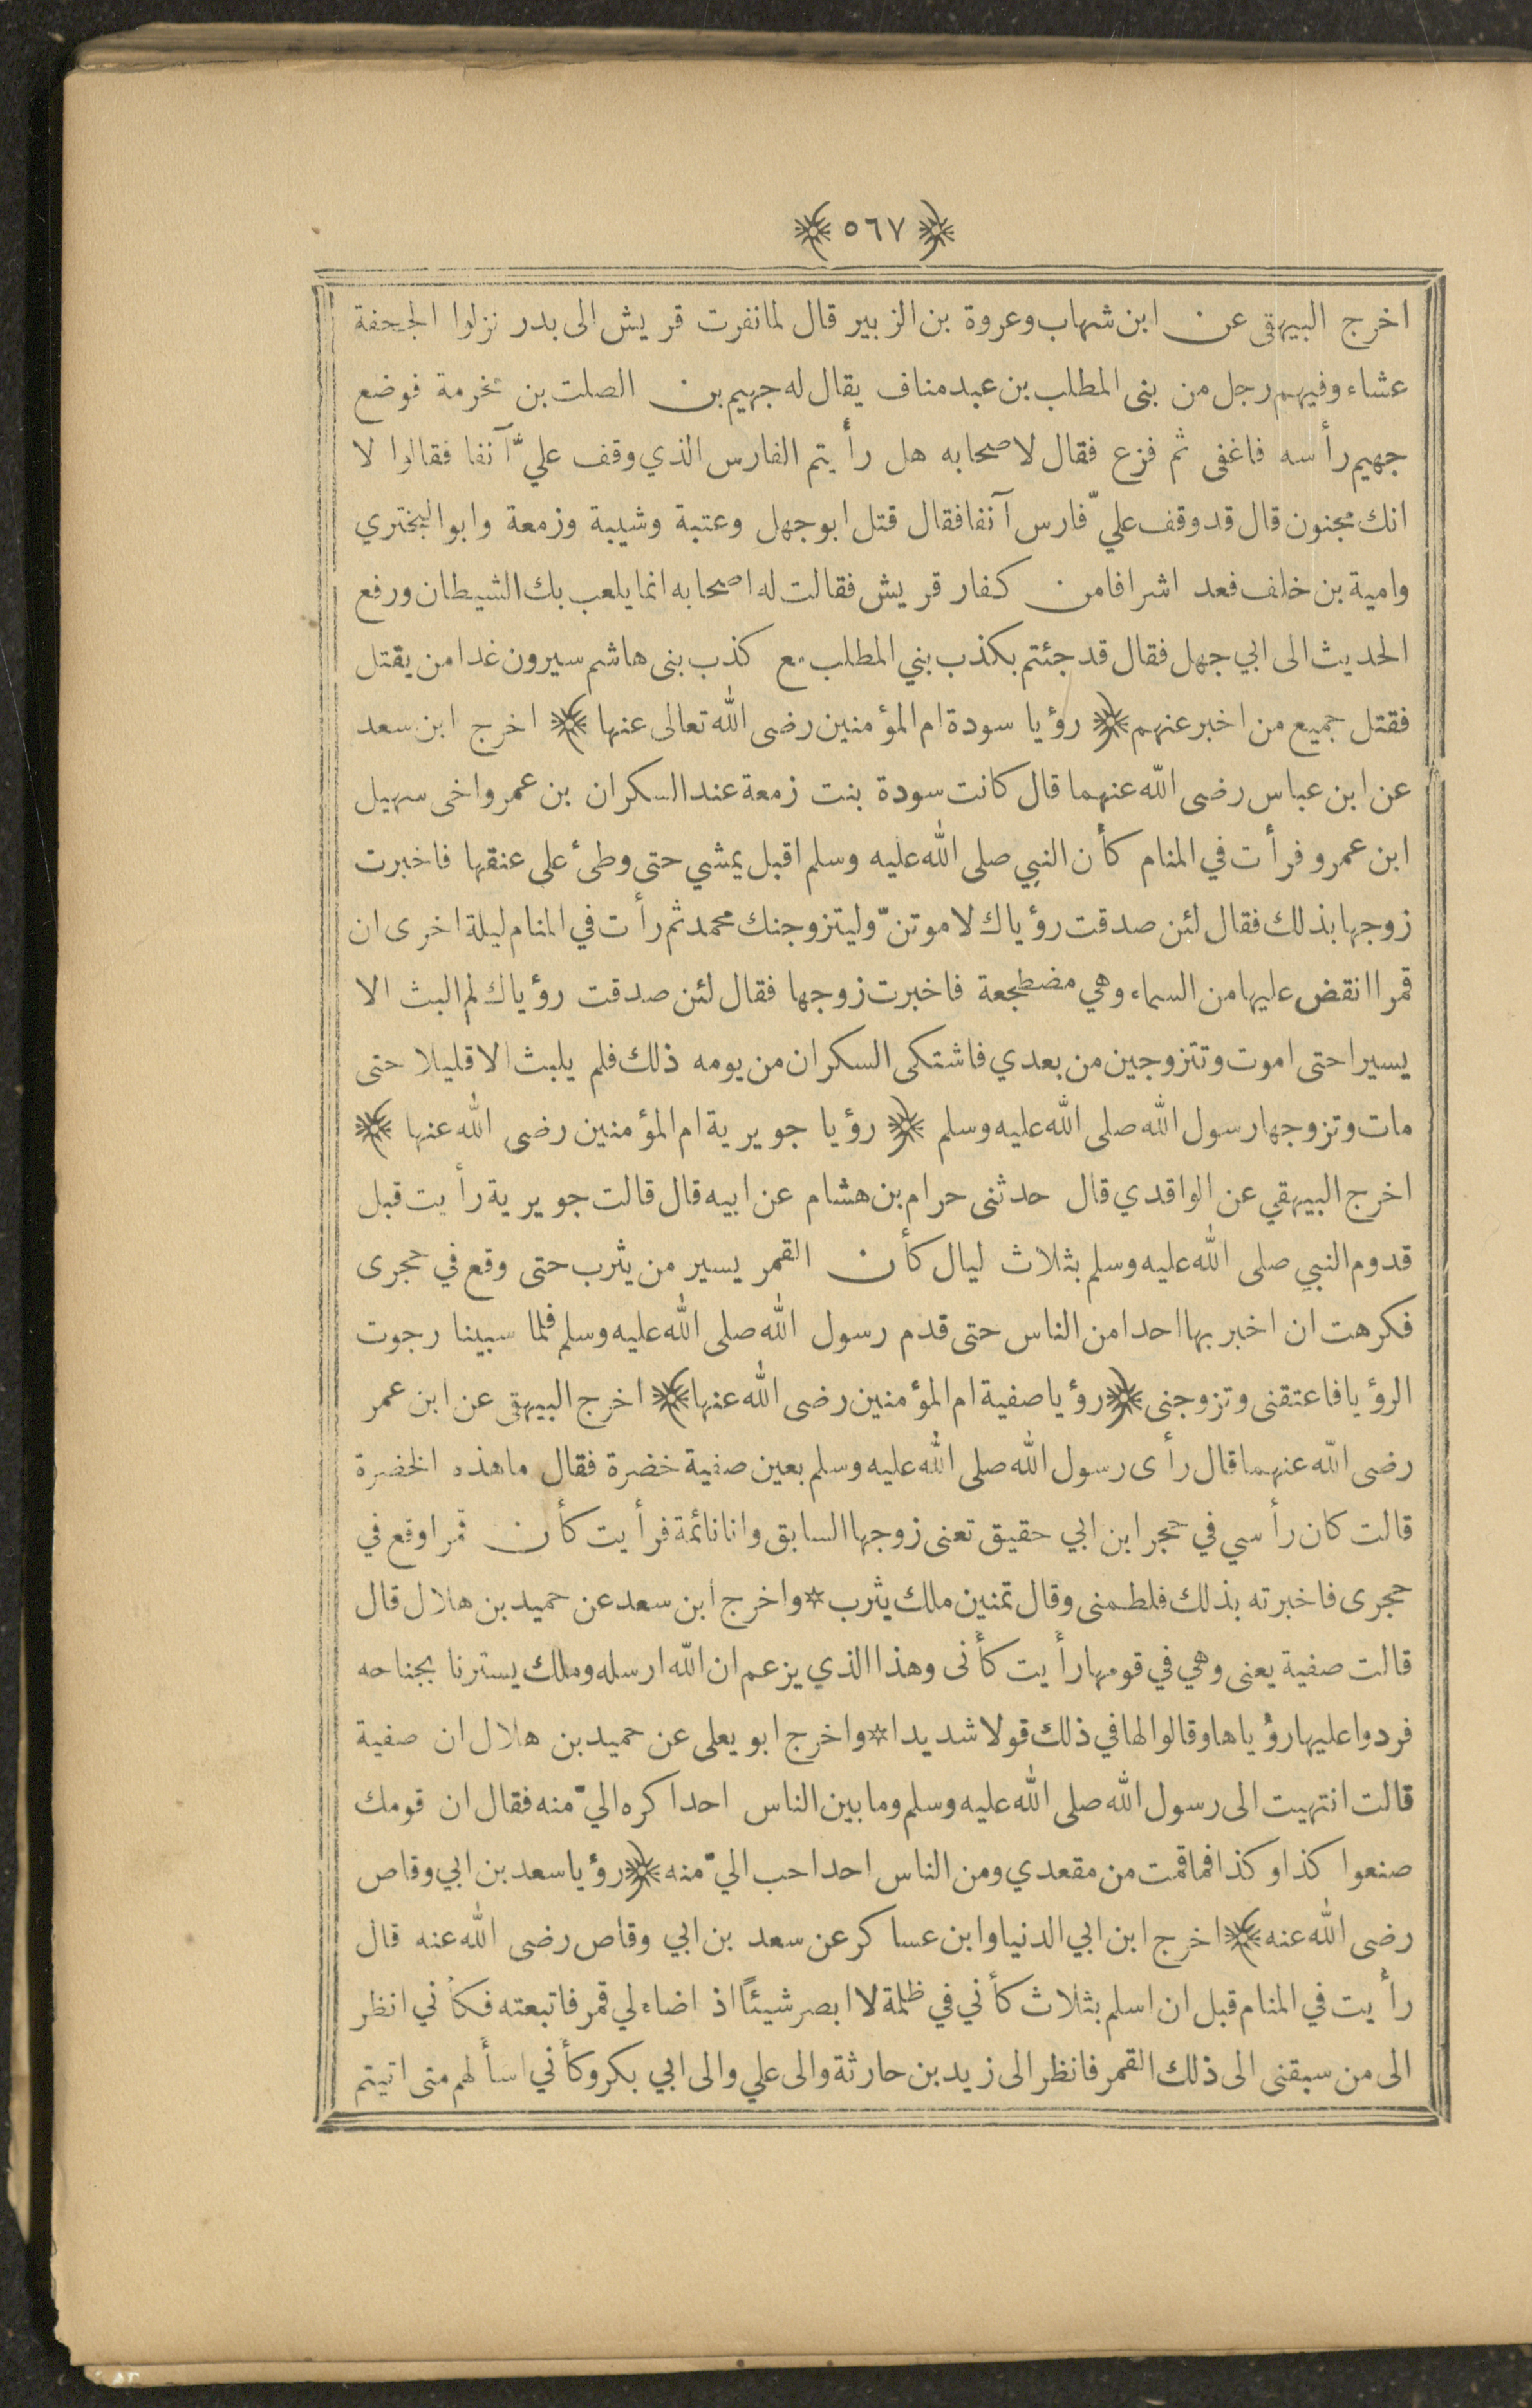 ﴿ ٥٦٧ ﴾
اخرج البيهقى عن ابن شهاب وعروة بن الزبير قال لما نفرت قريش الى بدر نزلوا الجحفة
عشاء وفيهم رجل من بنى المطلب بن عبد مناف يقال له جهيم بن الصلت بن مخرمة فوضع
جهيم رأسه فاغفى ثم فزع فقال لاصحابه هل رأيتم الفارس الذي وقف عليّ آنفا فقالوا لا
انك مجنون قال قد وقف عليّ فارس آنفا فقال قتل ابوجهل وعتبة وشيبة وزمعة وابوالبختري
وامية بن خلف فعد اشرافا من كفار قريش فقالت له اصحابه انما يلعب بك الشيطان ورفع
الحديث الى ابي جهل فقال قد جئتم بكذب بني المطلب مع كذب بنى هاشم سيرون غدا من يقتل
فقتل جميع من اخبر عنهم ﴿ رؤيا سودة ام المؤمنين رضى الله تعالى عنها ﴾ اخرج ابن سعد
عن ابن عباس رضى الله عنهما قال كانت سودة بنت زمعة عند السكران بن عمرو اخى سهيل
ابن عمرو فرأت في المنام كأن النبي صلى الله عليه وسلم اقبل يمشي حتى وطئ على عنقها فاخبرت
زوجها بذلك فقال لئن صدقت رؤياك لاموتنّ وليتزوجنك محمد ثم رأت في المنام ليلة اخرى ان
قمرا انقض عليها من السماء وهي مضطجعة فاخبرت زوجها فقال لئن صدقت رؤياك لم البث الا
يسيرا حتى اموت وتتزوجين من بعدي فاشتكى السكران من يومه ذلك فلم يلبث الا قليلا حتى
مات وتزوجها رسول الله صلى الله عليه وسلم ﴿ رؤيا جويرية ام المؤمنين رضى الله عنها ﴾
اخرج البيهقي عن الواقدي قال حدثنى حرام بن هشام عن ابيه قال قالت جويرية رأيت قبل
قدوم النبي صلى الله عليه وسلم بثلاث ليال كأن القمر يسير من يثرب حتى وقع في حجرى
فكرهت ان اخبر بها احدا من الناس حتى قدم رسول الله صلى الله عليه وسلم فلما سبينا رجوت
الرؤيا فاعتقنى وتزوجنى ﴿ رؤيا صفية ام المؤمنين رضى الله عنها ﴾ اخرج البيهقى عن ابن عمر
رضى الله عنهما قال رأى رسول الله صلى الله عليه وسلم بعين صفية خضرة فقال ما هذه الخضرة
قالت كان رأسي في حجر ابن ابي حقيق تعنى زوجها السابق وانا نائمة فرأيت كأن قمرا وقع في
حجرى فاخبرته بذلك فلطمنى وقال تمنين ملك يثرب * واخرج ابن سعد عن حميد بن هلال قال
قالت صفية يعنى وهي في قومها رأيت كأنى وهذا الذي يزعم ان الله ارسله وملك يسترنا بجناحه
فردوا عليها رؤياها وقالوا لها في ذلك قولا شديدا * واخرج ابو يعلى عن حميد بن هلال ان صفية
قالت انتهيت الى رسول الله صلى الله عليه وسلم وما بين الناس احدا كره اليّ منه فقال ان قومك
صنعوا كذا وكذا فما قمت من مقعدي ومن الناس احدا حب اليّ منه ﴿ رؤيا سعد بن ابي وقاص
رضى الله عنه ﴾ اخرج ابن ابي الدنيا وابن عساكر عن سعد بن ابي وقاص رضى الله عنه قال
رأيت في المنام قبل ان اسلم بثلاث كأني في ظلمة لا ابصر شيئًا اذ اضاء لي قمر فاتبعته فكأني انظر
الى من سبقنى الى ذلك القمر فانظر الى زيد بن حارثة والى علي والى ابي بكر وكأني اسألهم متى اتيتم